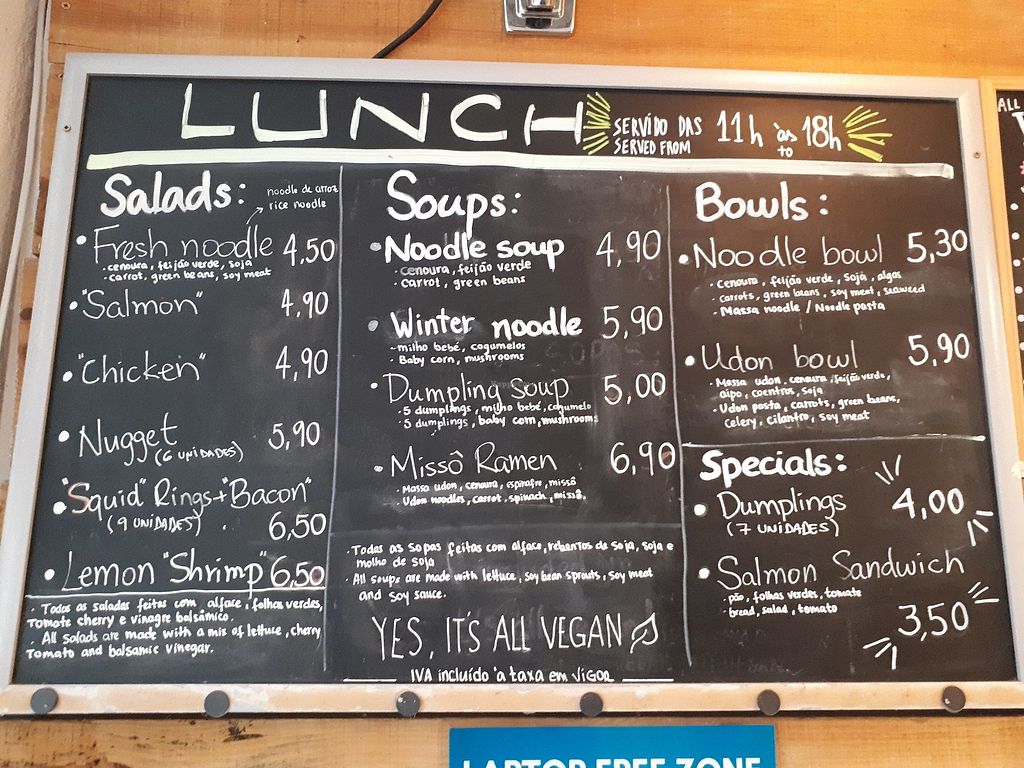 LUNCH
SERVIDO DAS 11h às 18h
SERVED FROM to
Salads:
noodle de arroz
rice noodle
• Fresh noodle 4,50
· cenoura, feijão verde, soja
· carrot, green beans, soy meat
• "Salmon" 4,90
• "Chicken" 4,90
• Nugget 5,90
(6 UNIDADES)
• "Squid" Rings + "Bacon"
(9 UNIDADES) 6,50
• Lemon "Shrimp" 6,50
· Todas as saladas feitas com alface, folhas verdes,
Tomate cherry e vinagre balsâmico.
· All salads are made with a mis of lettuce, cherry
Tomato and balsamic vinegar.
Soups:
• Noodle soup 4,90
· cenoura, feijão verde
· carrot, green beans
• Winter noodle 5,90
- milho bebé, cogumelos
· Baby corn, mushrooms
• Dumpling soup 5,00
· 5 dumplings, milho bebé, cogumelo
· 5 dumplings, baby corn, mushrooms
• Missô Ramen 6,90
· Massa udon, cenoura, espinafre, missô
· Udon noodles, carrot, spinach, missô,
· Todas as sopas feitas com alface, rebentos de soja, soja e
molho de soja
· All soups are made with lettuce, soy bean sprouts, soy meat
and soy sauce.
YES, IT'S ALL VEGAN
IVA incluído à taxa em vigor
Bowls:
• Noodle bowl 5,30
· cenoura, feijão verde, soja, algas
· carrots, green beans, soy meat, seaweed
· Massa noodle / Noodle pasta
• Udon bowl 5,90
· Massa udon, cenoura, feijão verde,
aipo, coentros, soja
· Udon pasta, carrots, green beans,
celery, cilantro, soy meat
Specials:
• Dumplings 4,00
(7 UNIDADES)
• Salmon Sandwich
· pão, folhas verdes, tomate
· bread, salad, tomato
3,50
ALL
LAPTOP FREE ZONE